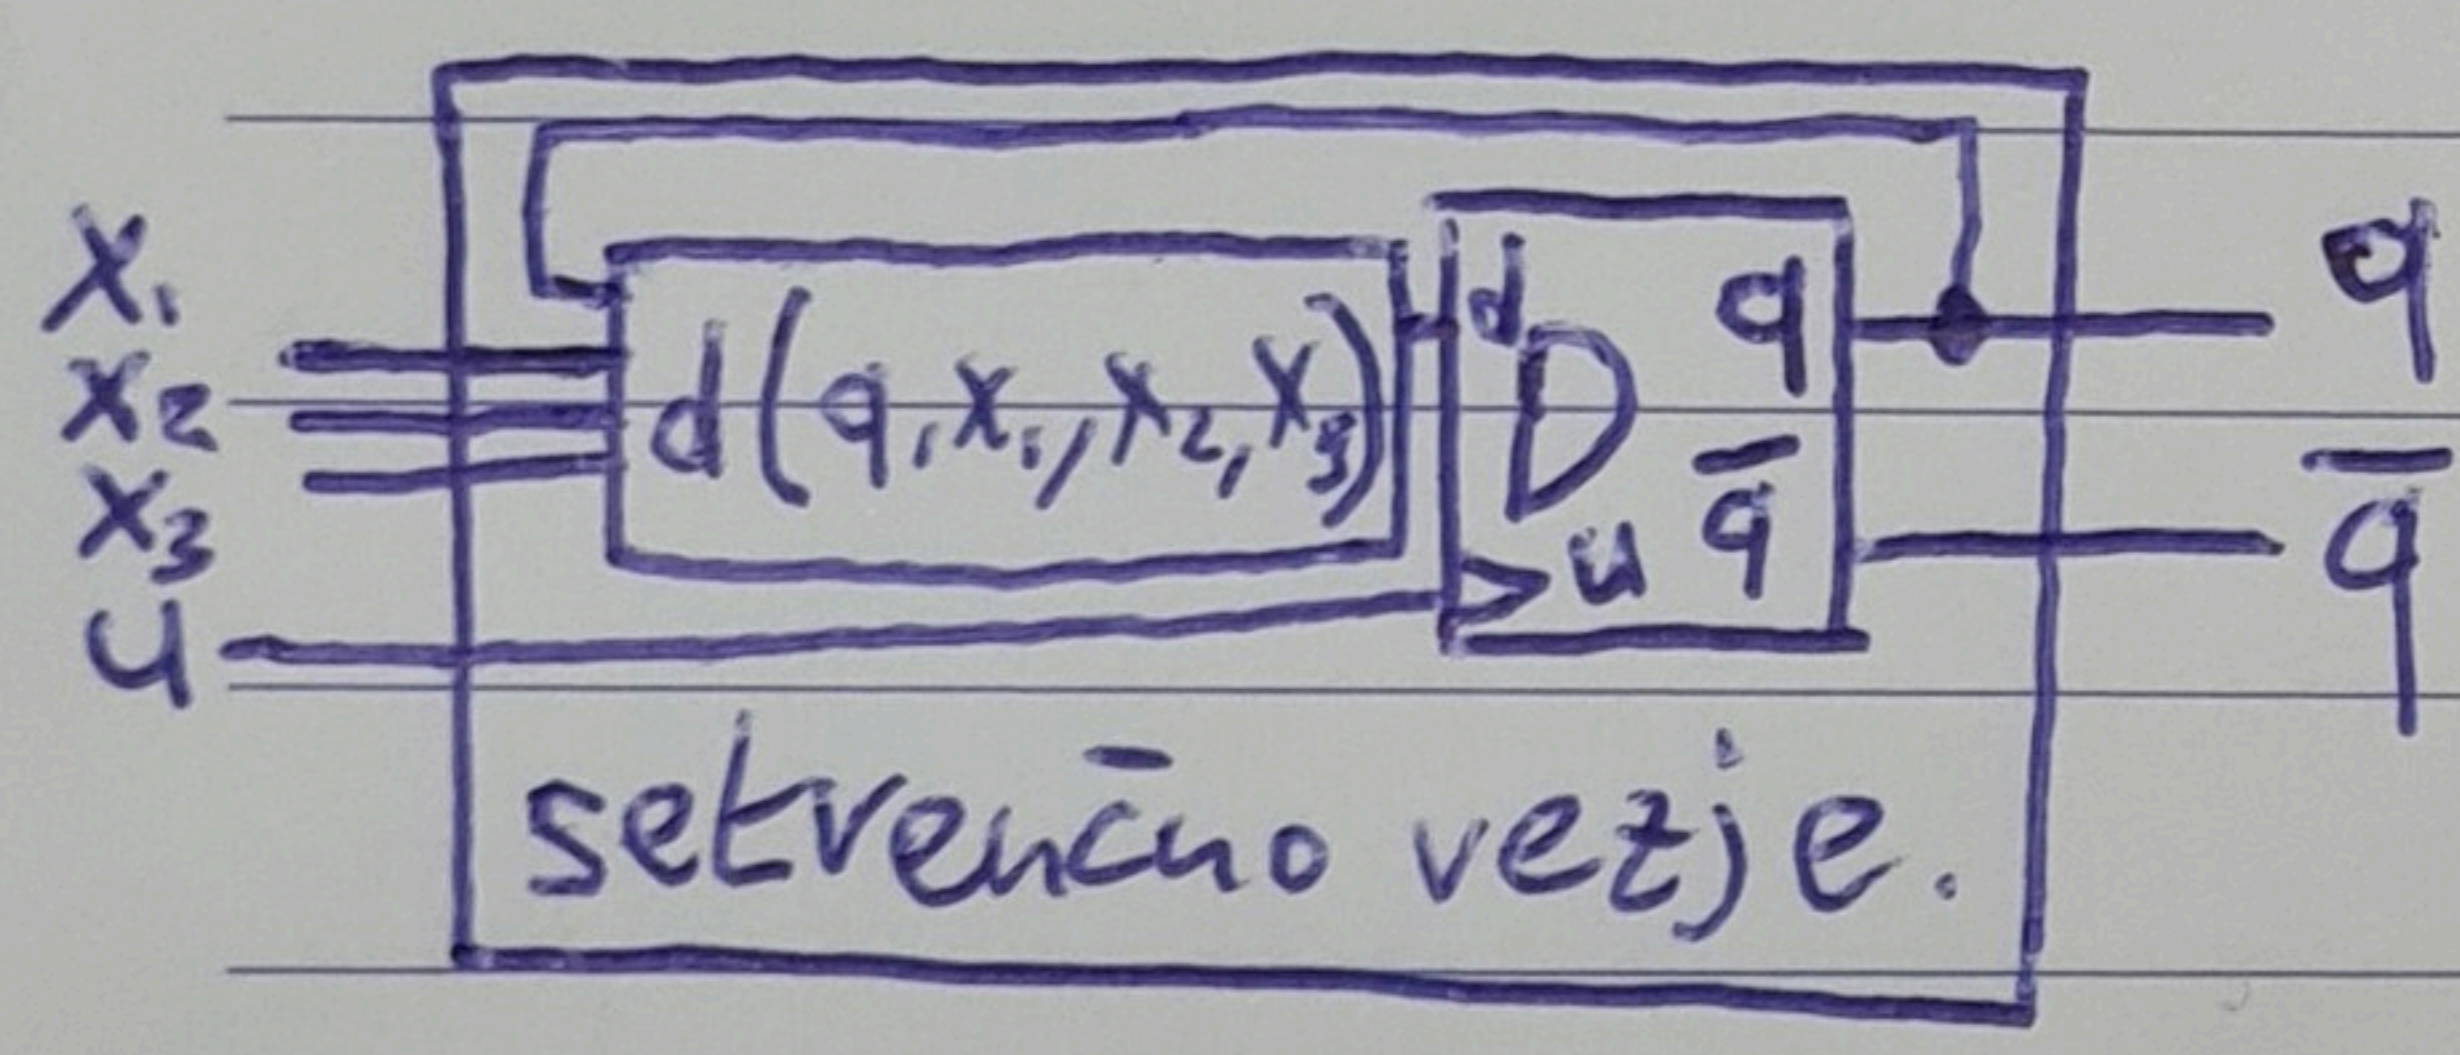 x₁
x₂
x₃
u
d(q,x₁,x₂,x₃)
d
D
u
q
q̅
q
q̅
sekvenčno vezje.